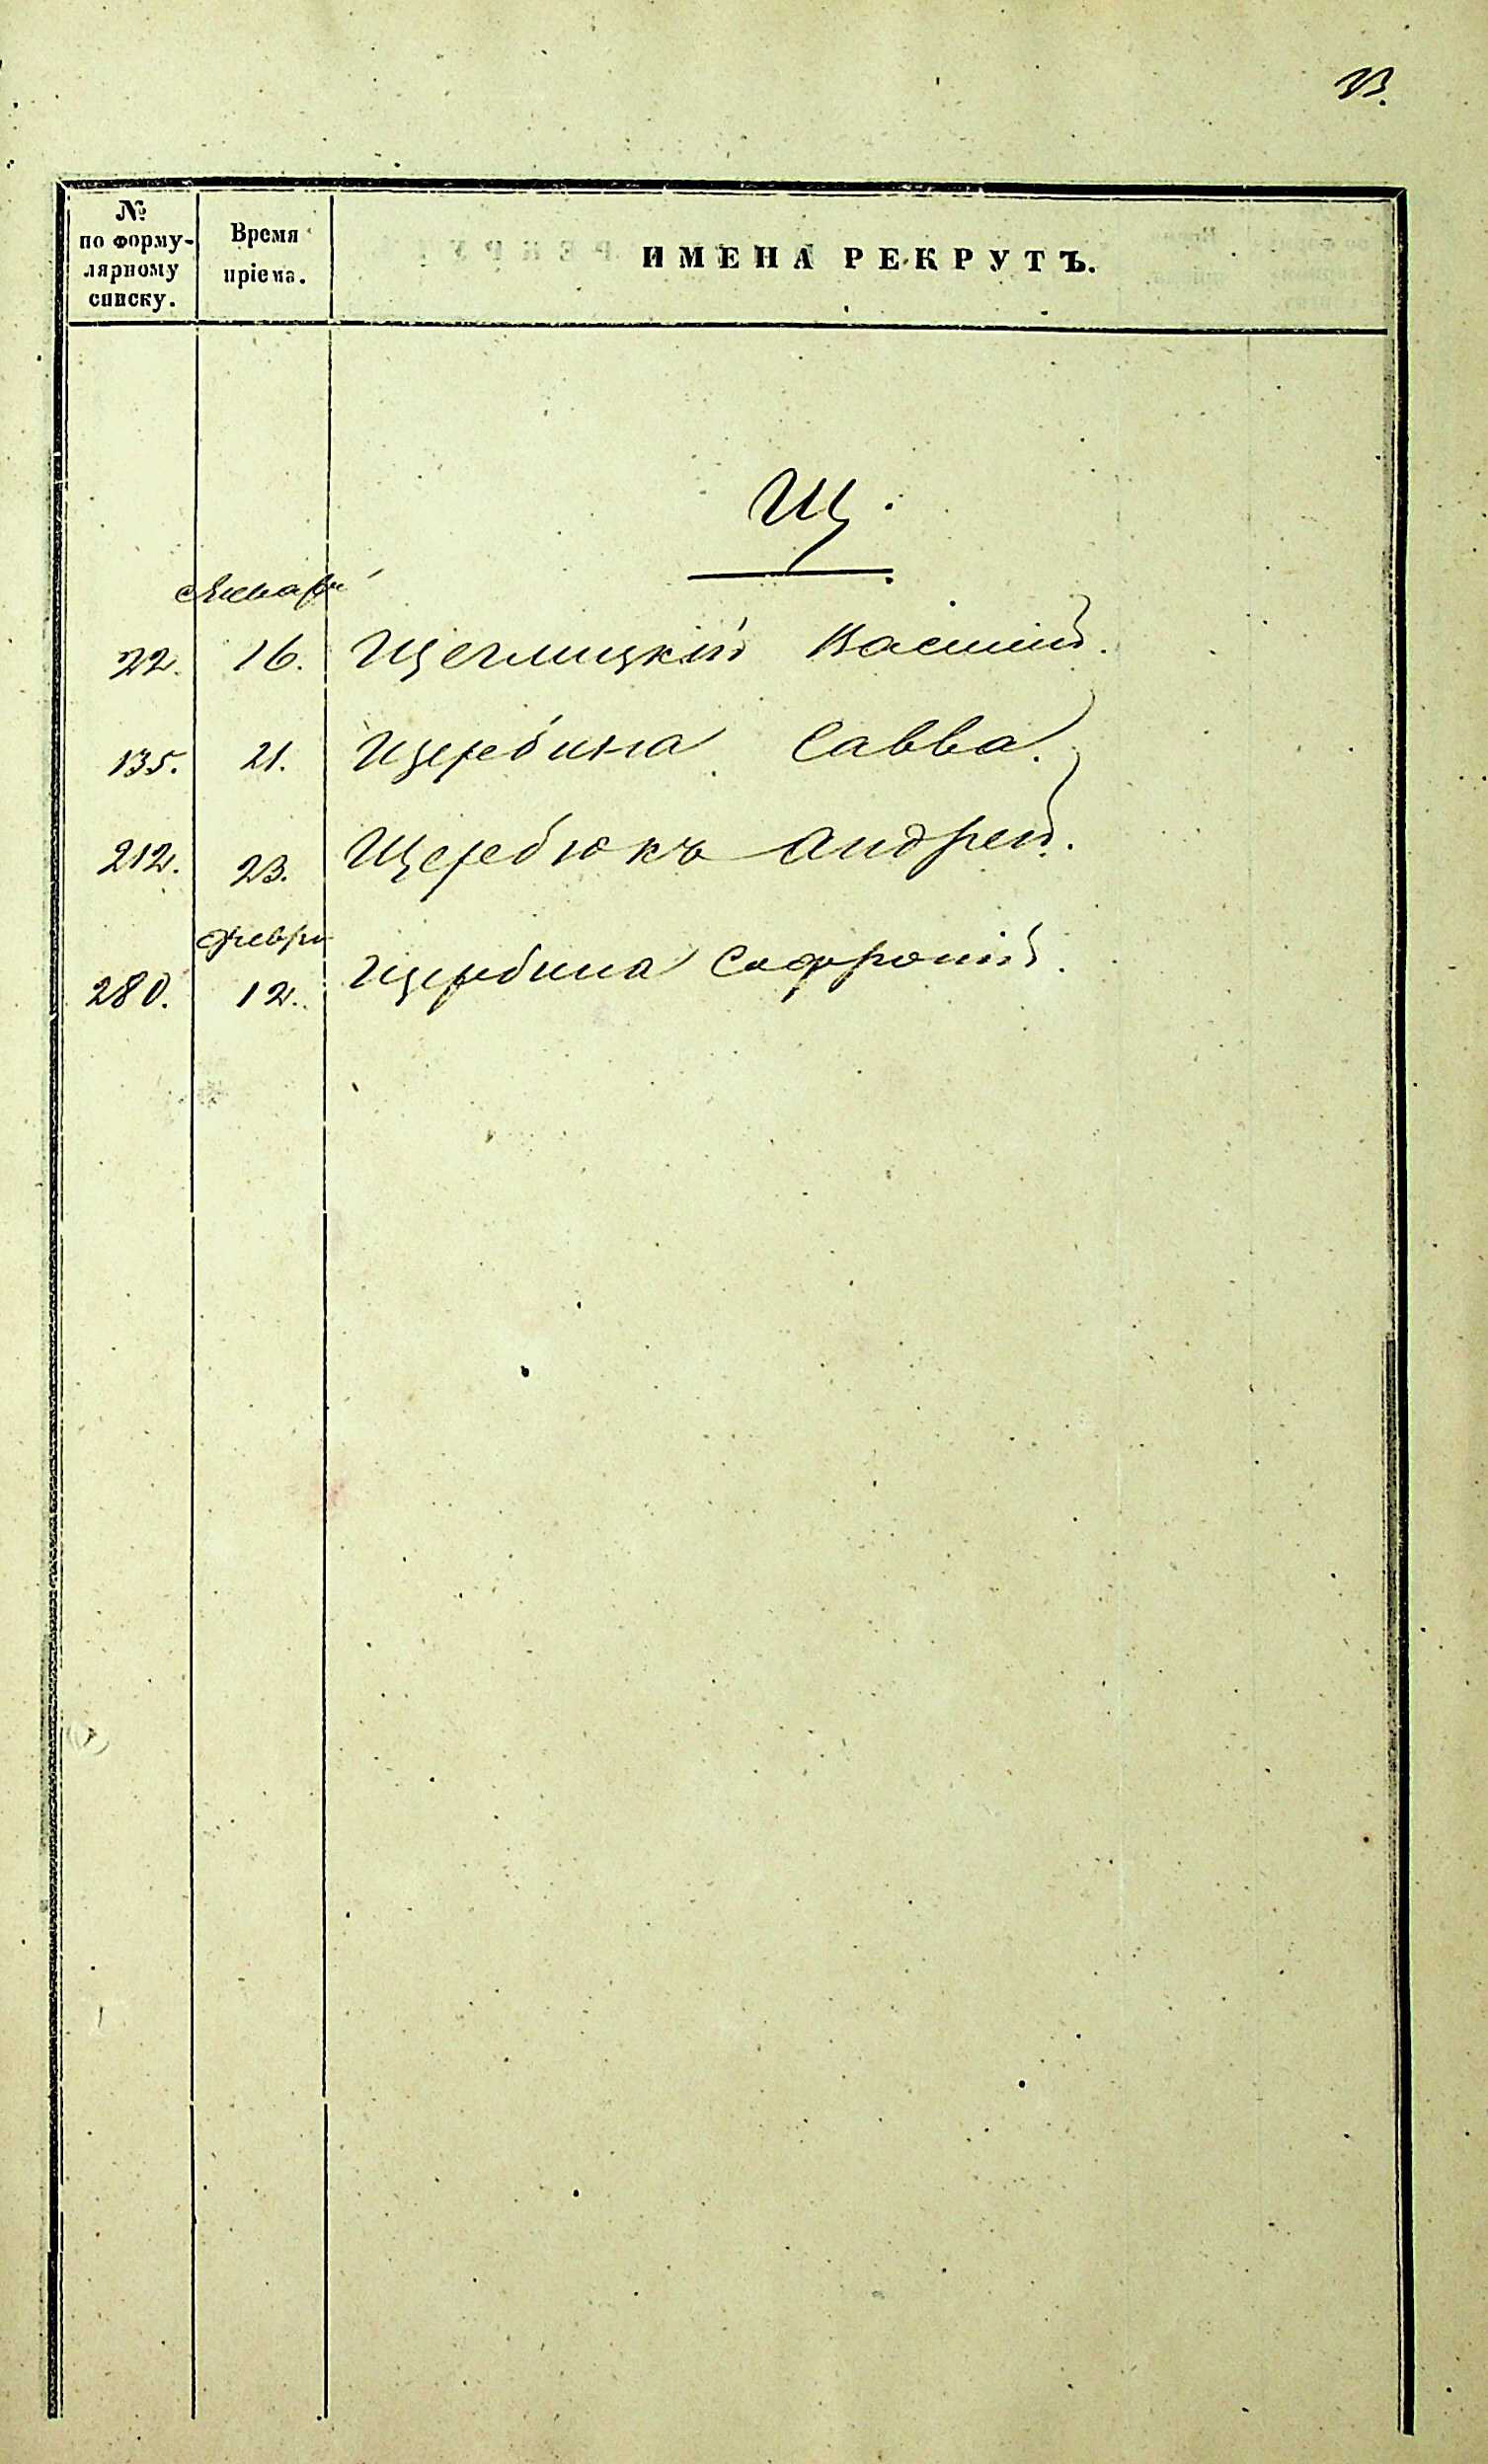 33.
№
по форму-
лярному
списку.
Время
пріема.
ИМЕНА РЕКРУТЪ.
Щ.
Января
22. 16. Щеглицкій Василій.
135. 21. Щербина Савва.
212. 23. Щербюкъ Андрей.
Февра
280. 12. Щербина Софроній.